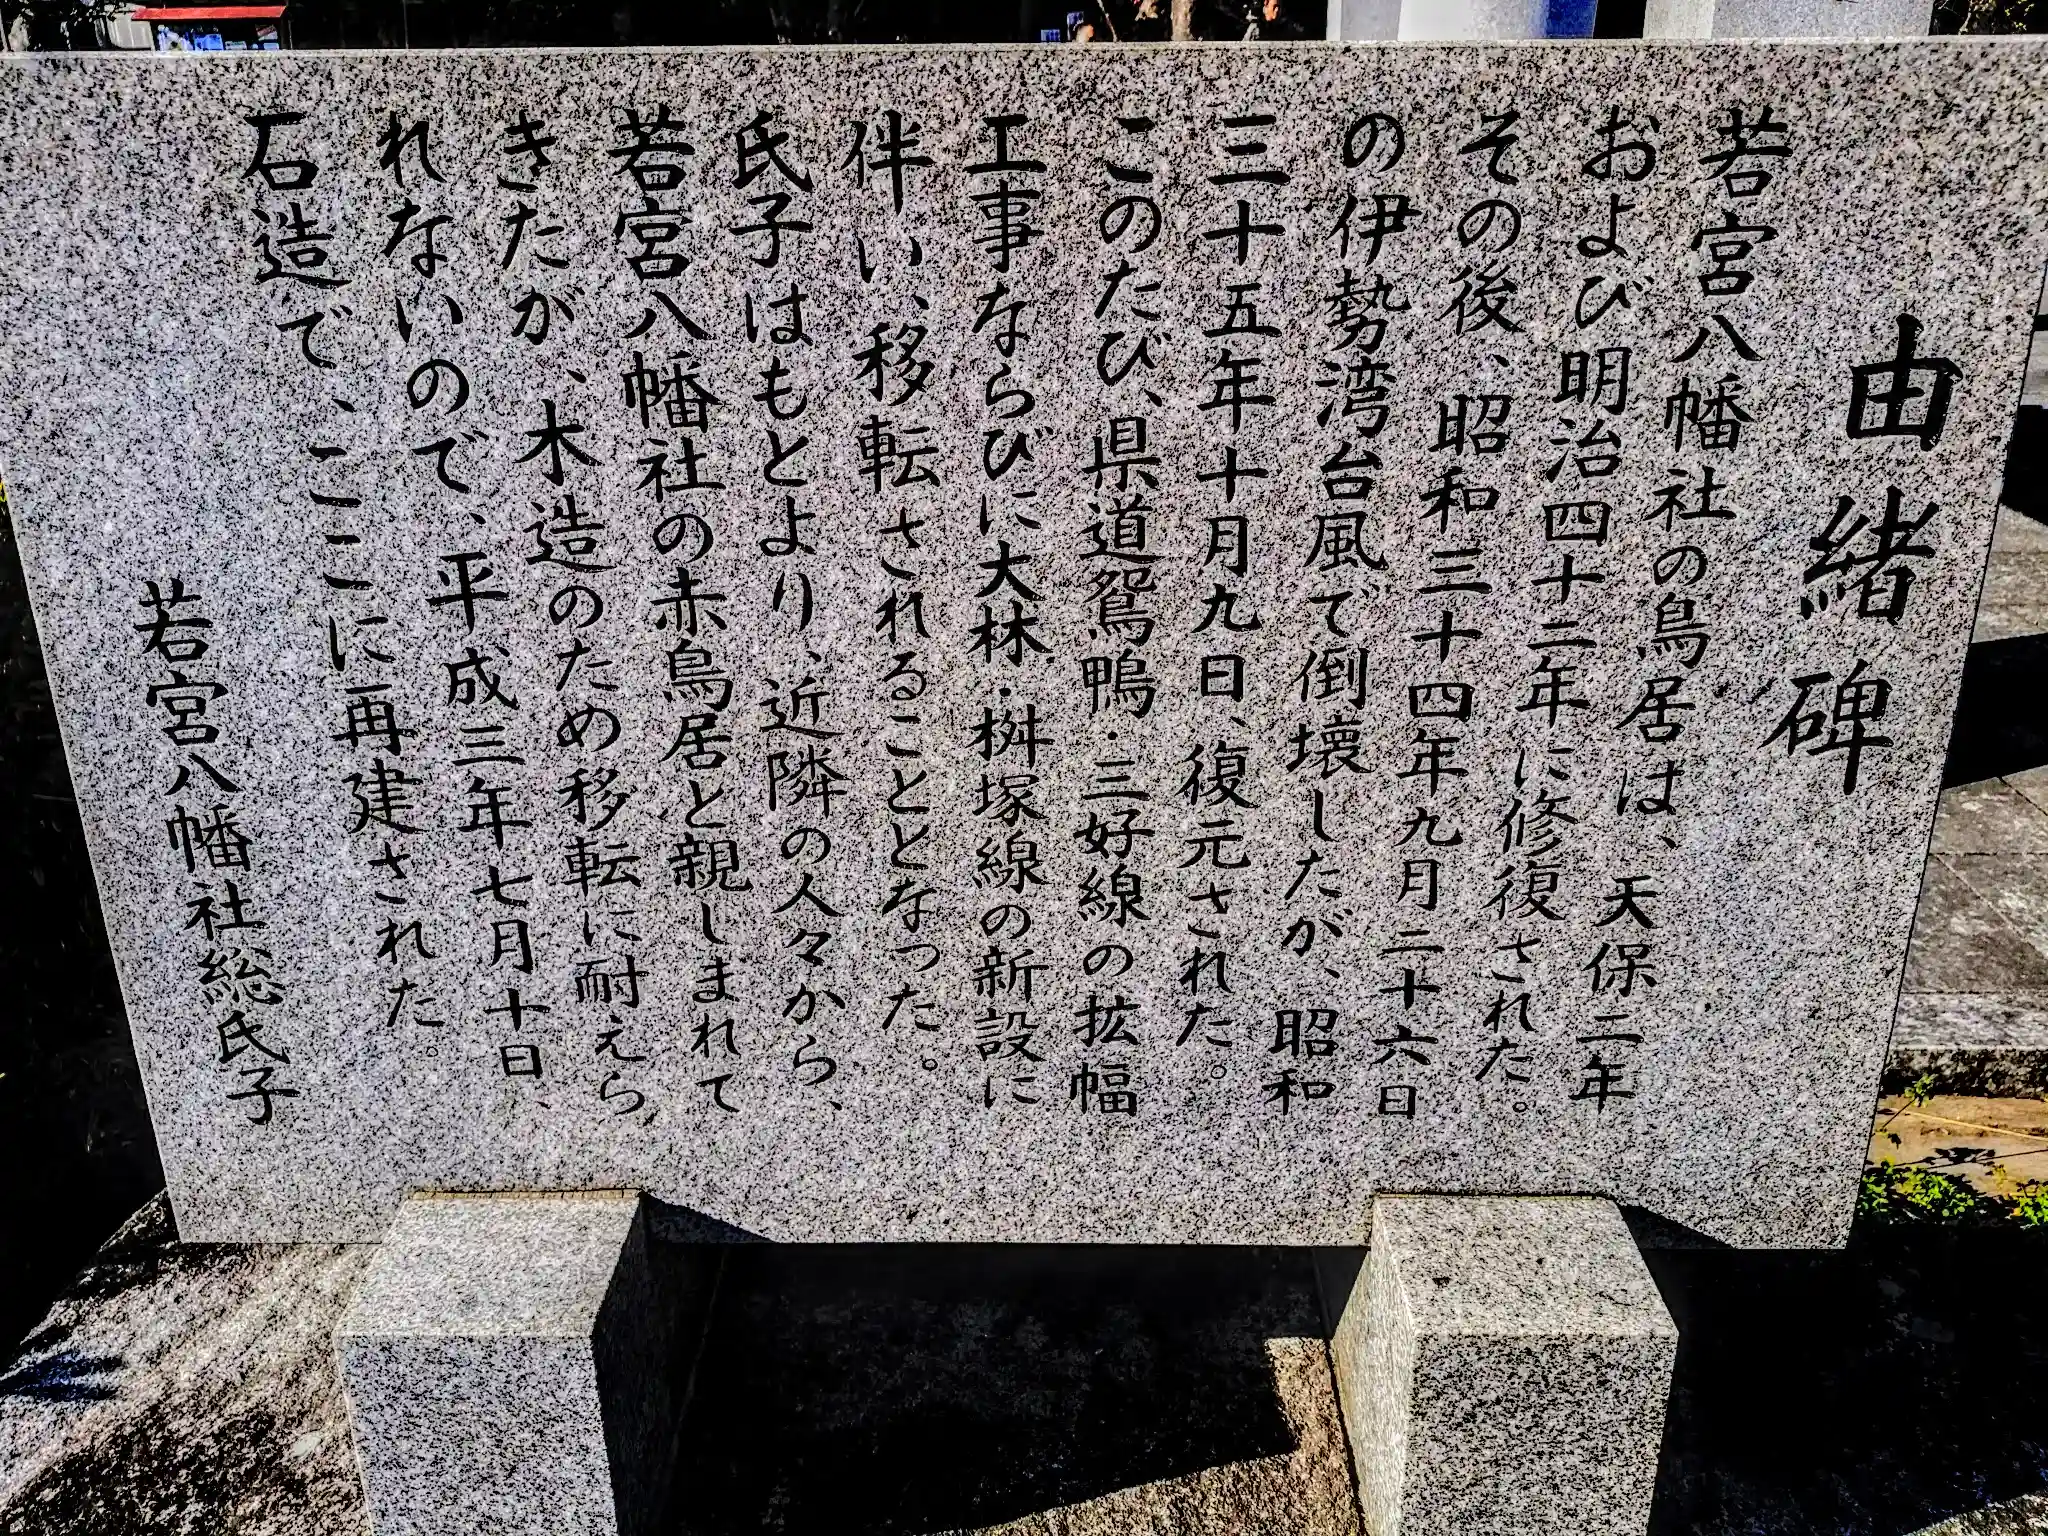 由緒碑
若宮八幡社の鳥居は、天保二年
および明治四十二年に修復された。
その後、昭和三十四年九月二十六日
の伊勢湾台風で倒壊したが、昭和
三十五年十月九日、復元された。
このたび、県道鴛鴨・三好線の拡幅
工事ならびに大林・桝塚線の新設に
伴い、移転されることとなった。
氏子はもとより、近隣の人々から、
若宮八幡社の赤鳥居と親しまれて
きたが、木造のため移転に耐えら
れないので、平成三年七月十日、
石造で、ここに再建された。
若宮八幡社総氏子